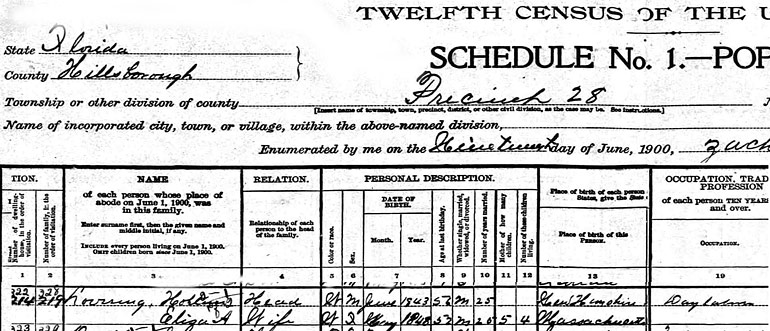 TWELFTH CENSUS OF THE U
State Florida
SCHEDULE No. 1.—POP
County Hillsborough
Township or other division of county Precinct 28
[Insert name of township, town, precinct, district, or other civil division, as the case may be. See instructions.]
Name of incorporated city, town, or village, within the above-named division,
Enumerated by me on the day of June, 1900,
TION. NAME RELATION. PERSONAL DESCRIPTION. OCCUPATION, TRAD
of each person whose place of abode on June 1, 1900, was in this family.
Enter surname first, then the given name and middle initial, if any.
INCLUDE every person living on June 1, 1900.
OMIT children born since June 1, 1900.
Relationship of each person to the head of the family.
Color or race.
Sex.
DATE OF BIRTH.
Month. Year.
Age at last birthday.
Whether single, married, widowed, or divorced.
Number of years married.
Mother of how many children.
Number of these children living.
Place of birth of this Person.
PROFESSION
of each person TEN YEARS
and over.
OCCUPATION.
1 2 3 4 5 6 7 8 9 10 11 12 13 19
Head W M June 1843 M 25 New Hampshire Day laborer
Eliza A Wife W M 25 5 4 Massachusetts